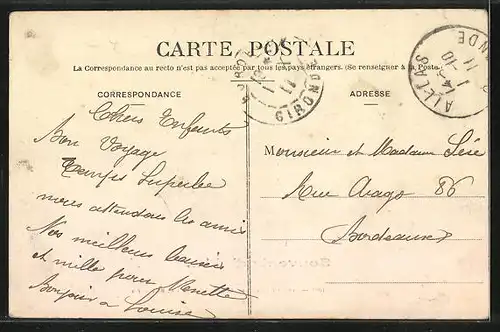 CARTE POSTALE
La Correspondance au recto n'est pas acceptée par tous les pays étrangers. (Se renseigner à la Poste.)
CORRESPONDANCE
Chers Enfants
Bon Voyage
Temps Superbe
nous attendons les amis
Nos meilleurs baisers
et mille pour Nénette
Bonjour à Louise
ADRESSE
Monsieur et Madame
Rue Arago 86
Bordeaux
GIRONDE
AILLAS